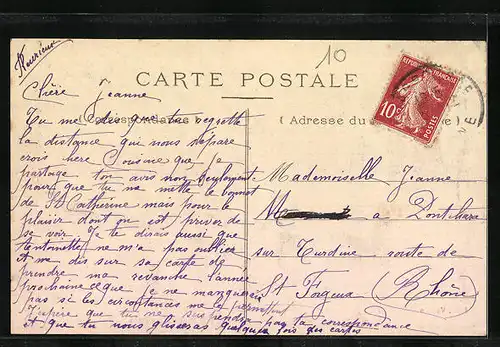 Fleurieux
10
CARTE POSTALE
( Correspondance )
( Adresse du )
REPUBLIQUE FRANÇAISE
10
POSTES
Chère Jeanne
Tu me dis que tu regrette
la distance qui nous sépare
crois chère Cousine que je
partage ton avis non seulement
pour que tu me mette le bonnet
de St Catherine mais pour le
plaisir dont on est priver de
se voir. Je te dirais aussi que
tantoinette ne m'a pas oubliée
et me dis sur sa carte de
prendre ma revanche l'année
prochaine ce que je ne manquerai
pas si les circonstances me le permettent
J'espère que tu ne suspendra
et que tu nous glisseras quelque fois des cartes
pas ta correspondance
Mademoiselle Jeanne
a Pontchara
sur Turdine route de
St Forgeux (Rhône)